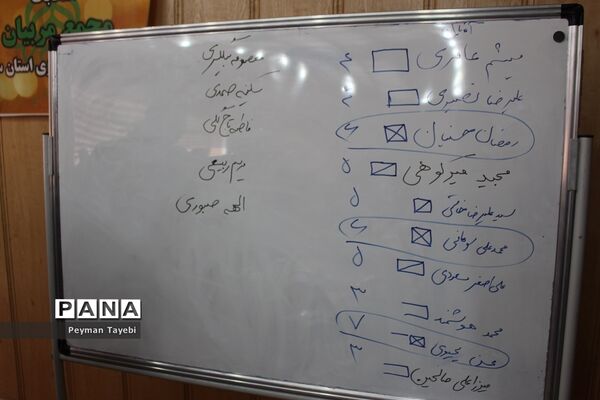 مجمع مربیان
آقایان
میثم عامری ۴
علیرضا نصیری ۴
رمضان محسنیان ۶
مجید میرکوهی ۵
سید علیرضا ۵
محمد علی ۶
علی اصغر مسعودی ۵
محمد هوشمند ۳
۷
میرزا علی صالحین ۳
معصومه
سکینه صمدی
فاطمه تاج
مریم ربیعی
الهه صبوری
PANA
Peyman Tayebi